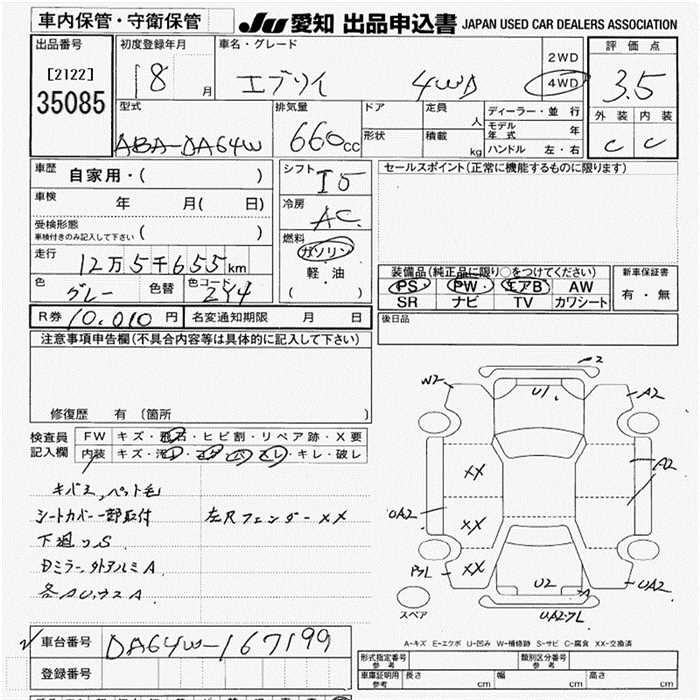 車内保管・守衛保管
JU 愛知 出品申込書 JAPAN USED CAR DEALERS ASSOCIATION
出品番号
[2122]
35085
初度登録年月
18 月
車名・グレード
エブリイ 4WD
2WD
4WD
評価点
3.5
外装 内装
C C
型式
ABA-DA64W
排気量
660cc
ドア
形状
定員 人
積載 kg
ディーラー・並行
モデル年式 年
ハンドル 左・右
車歴 自家用・( )
車検 年 月( 日)
受検形態
車検付きのみ記入して下さい ( )
走行 12万5千655km
色 グレー 色替 色コード Z94
シフト I5
冷房 AC
燃料
ガソリン
軽・油
( )
セールスポイント(正常に機能するものに限ります)
装備品(純正品に限り○をつけてください)
PS PW エアB AW
SR ナビ TV カワシート
新車保証書
有・無
後日品
R券 10,010 円 名変通知期限 月 日
注意事項申告欄(不具合内容等は具体的に記入して下さい)
修復歴 有(箇所 )
検査員記入欄
FW キズ・飛石・ヒビ割・リペア跡・X要
内装 キズ・汚れ・コゲ・穴・スレ・キレ・破レ
キバミ、ペット毛
シートカバー一部取付 左Rフェンダー XX
下廻りS
Dミラー、外アルミA
各AU、キスA
2
W2
U1
A2
XX
A2
UA2
XX
XX
U2
A
UA2
UA2
スペア
A-キズ E-エクボ U-凹み W-補修跡 S-サビ C-腐食 XX-交換済
車台番号 DA64W-167199
登録番号
形式指定番号 参考
類別区分番号 参考
車庫証明用 参考 長さ cm 幅 cm 高さ cm